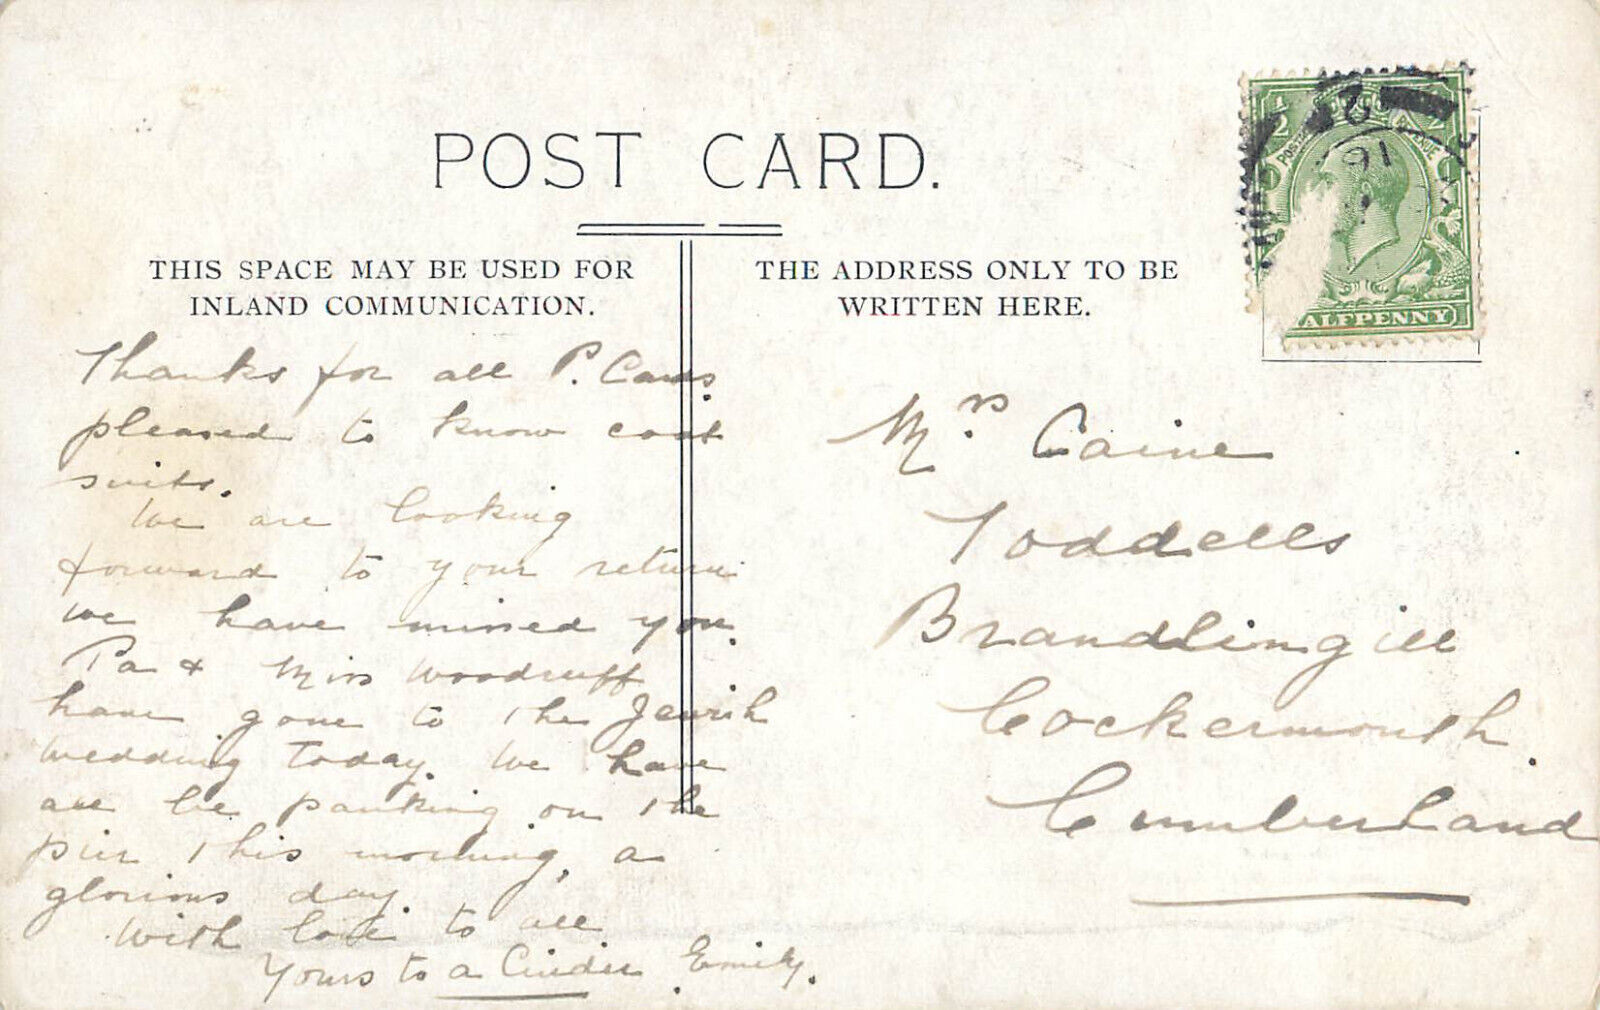 POST CARD.
THIS SPACE MAY BE USED FOR
INLAND COMMUNICATION.
THE ADDRESS ONLY TO BE
WRITTEN HERE.
½
POSTAGE REVENUE
ALFPENNY
16
Thanks for all P. Cards.
pleased to know coat
suits.
We are looking
forward to your return
we have missed you.
Pa & Miss Woodruff
have gone to the Jewish
Wedding today. We have
all be parking on the
pier this morning, a
glorious day.
With love to all
Yours to a Cinder Emily.
Mrs. Caine
Toddells
Brandlingill
Cockermouth.
Cumberland